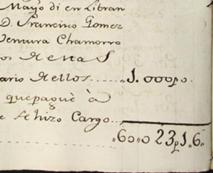 Mayo di en Libran
D. Francisco Gomez
Ventura Chamorro
os Renas
ario Rellos ... 1.000po.
quepagué à
e Ahizo Cargo...
60.0 23p16